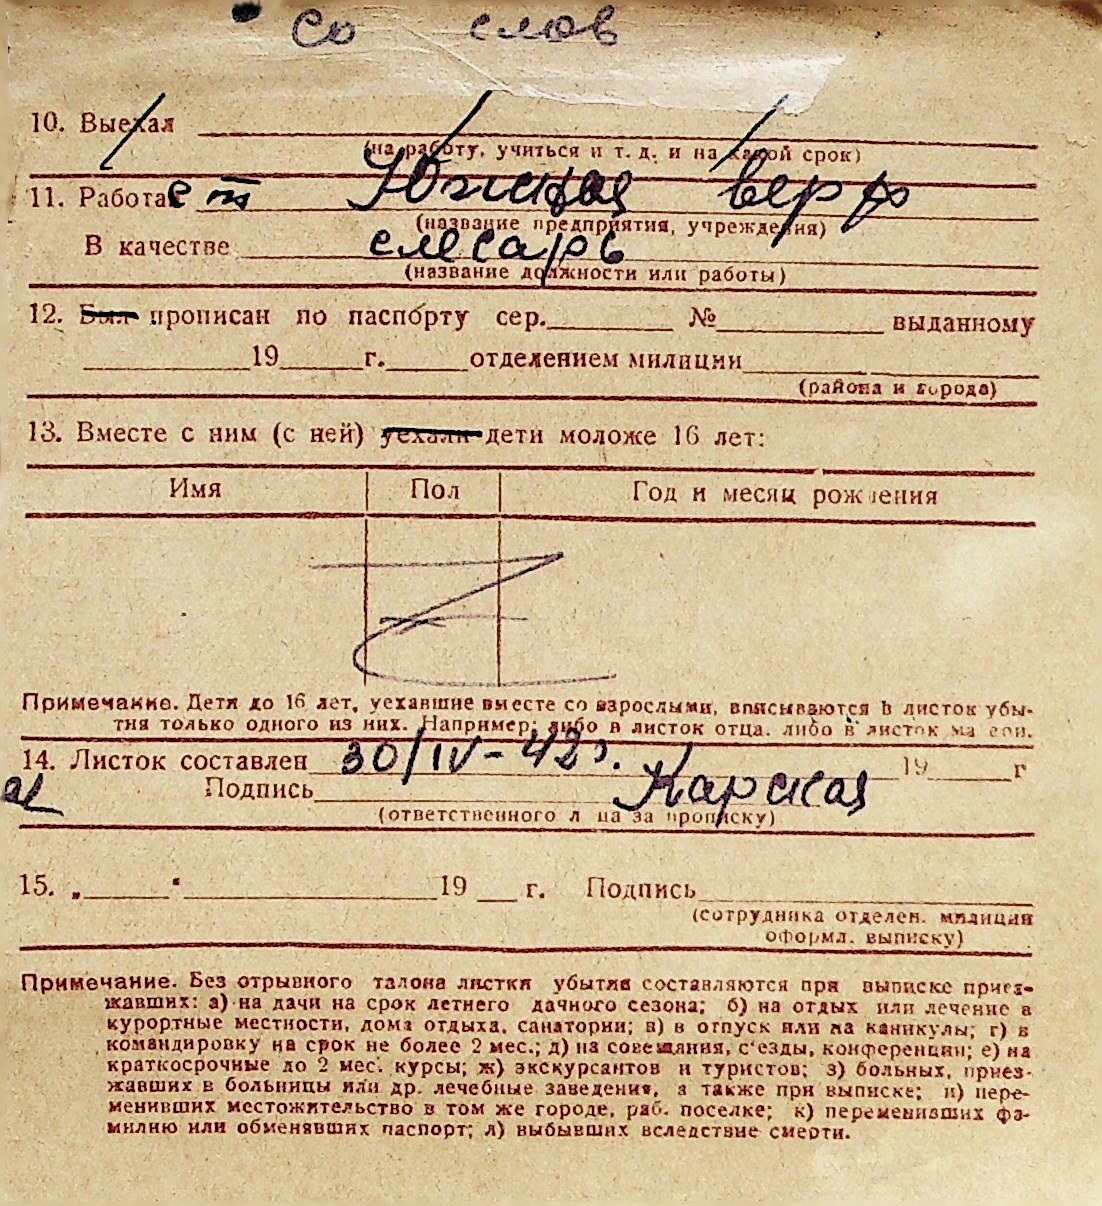 со слов
10. Выехал
(на работу, учиться и т. д. и на какой срок)
11. Работает Южная верф
(название предприятия, учреждения)
В качестве слесарь
(название должности или работы)
12. Был прописан по паспорту сер. № выданному
19 г. отделением милиции
(района и города)
13. Вместе с ним (с ней) уехали дети моложе 16 лет:
Имя Пол Год и месяц рождения
Примечание. Дети до 16 лет, уехавшие вместе со взрослыми, вписываются в листок убы-
тия только одного из них. Например: либо в листок отца, либо в листок матери.
14. Листок составлен 30/IV-42г. 19 г
Подпись Карская
(ответственного лица за прописку)
15. „ “ 19 г. Подпись
(сотрудника отделен. милиции
оформл. выписку)
Примечание. Без отрывного талона листки убытия составляются при выписке приез-
жавших: а) на дачи на срок летнего дачного сезона; б) на отдых или лечение в
курортные местности, дома отдыха, санатории; в) в отпуск или на каникулы; г) в
командировку на срок не более 2 мес.; д) на совещания, с'езды, конференции; е) на
краткосрочные до 2 мес. курсы; ж) экскурсантов и туристов; з) больных, приез-
жавших в больницы или др. лечебные заведения, а также при выписке; и) пере-
менивших местожительство в том же городе, раб. поселке; к) переменивших фа-
милию или обменявших паспорт; л) выбывших вследствие смерти.